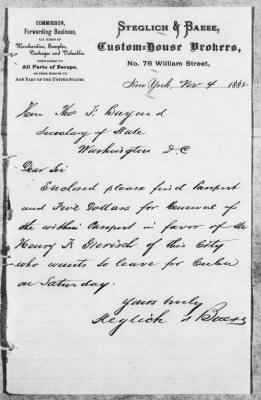 COMMISSION,
Forwarding Business,
ALL KINDS OF
Merchandise, Samples,
Packages and Valuables
FORWARDED TO
All Parts of Europe,
OR FROM EUROPE TO
ANY PART OF THE UNITED STATES
STEGLICH & BAESE,
Custom-House Brokers,
No. 76 William Street,
New York, Nov 4 188
Hon Tho F. Bayard
Secretary of State
Washington D.C
Dear Sir
Enclosed please find Passport
and Five Dollars for Renewal of
the within Passport in favor of Mr
Henry F. Gierisch of this City
who wants to leave for Cuba
on Saturday.
Yours truly
Steglich & Baese